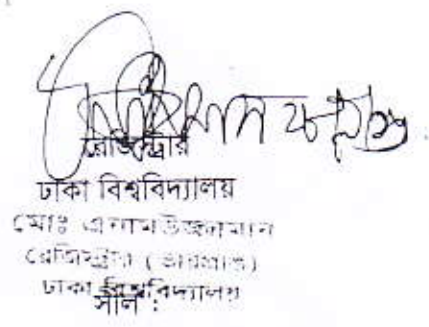 রেজিস্ট্রার
ঢাকা বিশ্ববিদ্যালয়
মোঃ এনামউজ্জামান
রেজিস্ট্রার (ভারপ্রাপ্ত)
ঢাকা বিশ্ববিদ্যালয়
সীল :